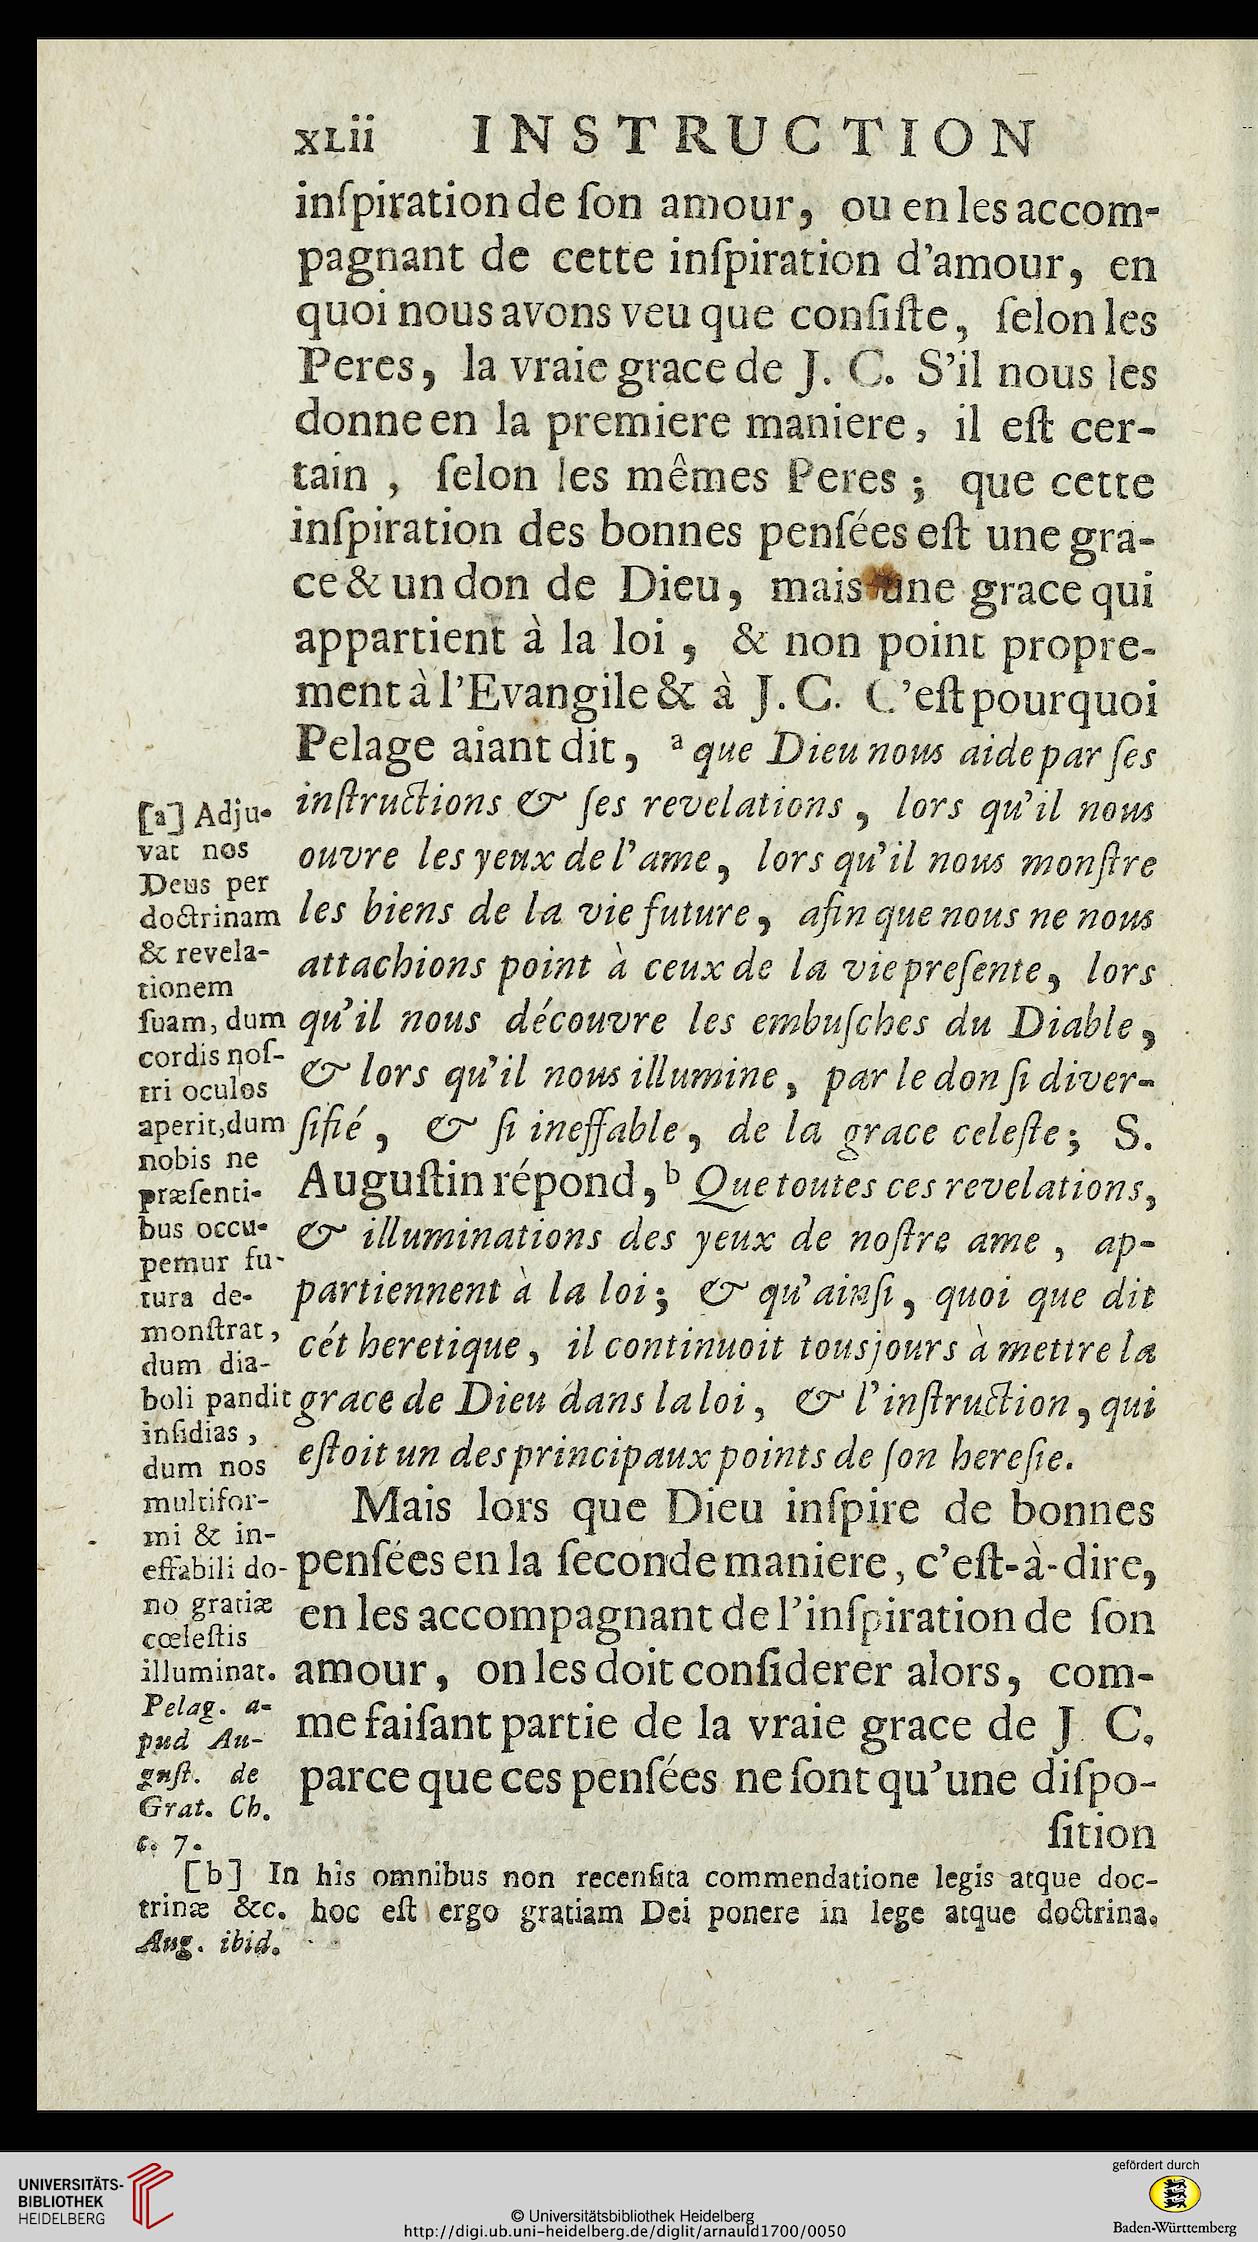 xLii INSTRUCTION
inſpiration de ſon amour, ou en les accom-
pagnant de cette inſpiration d'amour, en
quoi nous avons veu que conſiſte, ſelon les
Peres, la vraie grace de J. C. S'il nous les
donne en la premiere maniere, il eſt cer-
tain, ſelon les mêmes Peres; que cette
inſpiration des bonnes penſées eſt une gra-
ce & un don de Dieu, mais une grace qui
appartient à la loi, & non point propre-
ment à l'Evangile & à J. C. C'eſt pourquoi
Pelage aiant dit, ª que Dieu nous aide par ſes
inſtructions & ſes revelations, lors qu'il nous
ouvre les yeux de l'ame, lors qu'il nous monſtre
les biens de la vie future, afin que nous ne nous
attachions point à ceux de la vie preſente, lors
qu'il nous découvre les embuſches du Diable,
& lors qu'il nous illumine, par le don ſi diver-
ſifié, & ſi ineffable, de la grace celeſte; S.
Auguſtin répond, ᵇ Que toutes ces revelations,
& illuminations des yeux de noſtre ame, ap-
partiennent à la loi; & qu'ainſi, quoi que dit
cét heretique, il continuoit tousjours à mettre la
grace de Dieu dans la loi, & l'inſtruction, qui
eſtoit un des principaux points de ſon hereſie.
Mais lors que Dieu inſpire de bonnes
penſées en la ſeconde maniere, c'eſt-à-dire,
en les accompagnant de l'inſpiration de ſon
amour, on les doit conſiderer alors, com-
me faiſant partie de la vraie grace de J C.
parce que ces penſées ne ſont qu'une diſpo-
ſition
[a] Adju-
vat nos
Deus per
doctrinam
& revela-
tionem
ſuam, dum
cordis noſ-
tri oculos
aperit, dum
nobis ne
præſenti-
bus occu-
pemur fu-
tura de-
monſtrat,
dum dia-
boli pandit
inſidias,
dum nos
multifor-
mi & in-
effabili do-
no gratiæ
cœleſtis
illuminat.
Pelag. a-
pud Au-
guſt. de
Grat. Ch.
c. 7.
[b] In his omnibus non recenſita commendatione legis atque doc-
trinæ &c. hoc eſt ergo gratiam Dei ponere in lege atque doctrina.
Aug. ibid.
UNIVERSITÄTS-
BIBLIOTHEK
HEIDELBERG
© Universitätsbibliothek Heidelberg
http://digi.ub.uni-heidelberg.de/diglit/arnauld1700/0050
gefördert durch
Baden-Württemberg